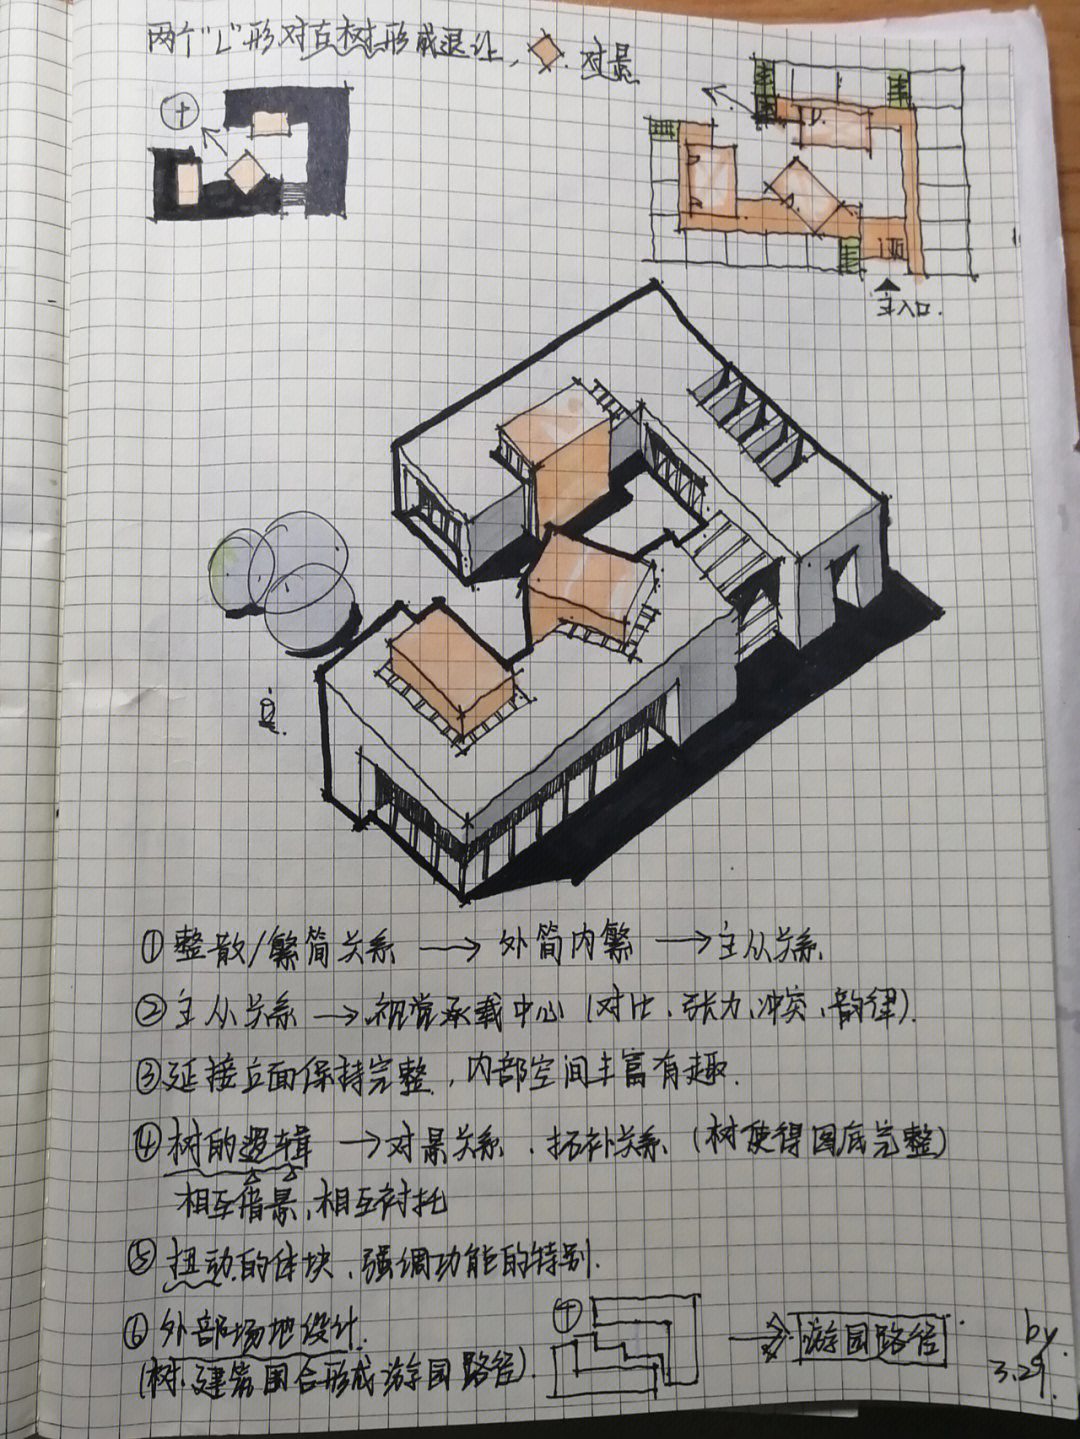 两个"L"形对互树形成退让, 对景
主入口.
①整散/繁简关系 → 外简内繁 → 主从关系.
②主从关系 → 视觉承载中心(对比、张力、冲突、韵律).
③延接立面保持完整, 内部空间丰富有趣.
④树的逻辑 → 对景关系、拓补关系(树使得图底完整)
相互借景,相互衬托
⑤扭动的体块、强调功能的特别.
⑥外部场地设计.
(树、建筑围合形成游园路径). → 游园路径
by.
3.29.